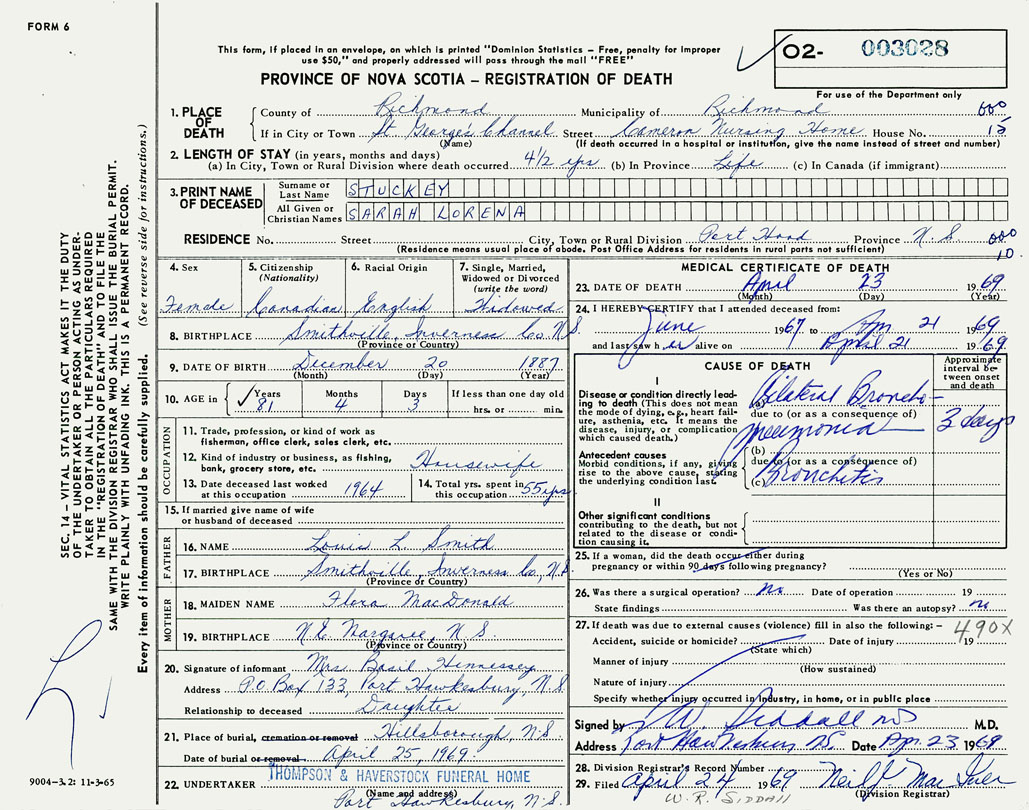 FORM 6
This form, if placed in an envelope, on which is printed "Dominion Statistics – Free, penalty for improper
use $50," and properly addressed will pass through the mail "FREE"
PROVINCE OF NOVA SCOTIA – REGISTRATION OF DEATH
O2- 003028
For use of the Department only
SEC. 14 – VITAL STATISTICS ACT MAKES IT THE DUTY
OF THE UNDERTAKER OR PERSON ACTING AS UNDER-
TAKER TO OBTAIN ALL THE PARTICULARS REQUIRED
IN THE "REGISTRATION OF DEATH" AND TO FILE THE
SAME WITH THE DIVISION REGISTRAR WHO SHALL ISSUE THE BURIAL PERMIT.
WRITE PLAINLY WITH UNFADING INK. THIS IS A PERMANENT RECORD.
Every item of information should be carefully supplied. (See reverse side for instructions.)
1. PLACE OF DEATH
County of Richmond Municipality of Richmond 000
If in City or Town St. George's Channel Street Cameron Nursing Home House No. 15
(Name) (If death occurred in a hospital or institution, give the name instead of street and number)
2. LENGTH OF STAY (in years, months and days)
(a) In City, Town or Rural Division where death occurred 4 1/2 yrs (b) In Province Life (c) In Canada (if immigrant)
3. PRINT NAME OF DECEASED
Surname or Last Name STUCKEY
All Given or Christian Names SARAH LORENA
RESIDENCE No. Street City, Town or Rural Division Port Hood Province N.S. 000
(Residence means usual place of abode. Post Office Address for residents in rural parts not sufficient) 10.
4. Sex Female
5. Citizenship (Nationality) Canadian
6. Racial Origin English
7. Single, Married, Widowed or Divorced (write the word) Widowed
8. BIRTHPLACE Smithville, Inverness Co N.S
(Province or Country)
9. DATE OF BIRTH December 20 1887
(Month) (Day) (Year)
10. AGE in Years 81 Months 4 Days 3 If less than one day old hrs. or min.
OCCUPATION
11. Trade, profession, or kind of work as
fisherman, office clerk, sales clerk, etc.
12. Kind of industry or business, as fishing,
bank, grocery store, etc. Housewife
13. Date deceased last worked
at this occupation 1964
14. Total yrs. spent in
this occupation 55 yrs
15. If married give name of wife
or husband of deceased
FATHER
16. NAME Louis L. Smith
17. BIRTHPLACE Smithville, Inverness Co., N.S.
(Province or Country)
MOTHER
18. MAIDEN NAME Flora MacDonald
19. BIRTHPLACE N.E. Margaree, N.S.
(Province or Country)
20. Signature of informant Mrs Basil Hennessey
Address P.O. Box 133, Port Hawkesbury, N.S.
Relationship to deceased Daughter
21. Place of burial, cremation or removal Hillsborough, N.S.
Date of burial or removal April 25, 1969
22. UNDERTAKER THOMPSON & HAVERSTOCK FUNERAL HOME
(Name and address)
Port Hawkesbury, N.S.
9004-3.2: 11-3-65
MEDICAL CERTIFICATE OF DEATH
23. DATE OF DEATH April 23 1969
(Month) (Day) (Year)
24. I HEREBY CERTIFY that I attended deceased from:
June 1967 to Apr 21 1969
and last saw her alive on April 21 1969
CAUSE OF DEATH
Approximate interval between onset and death
I
Disease or condition directly lead-
ing to death (This does not mean
the mode of dying, e.g., heart fail-
ure, asthenia, etc. It means the
disease, injury, or complication
which caused death.)
(a) Bilateral Broncho-
due to (or as a consequence of)
pneumonia 3 days
Antecedent causes
Morbid conditions, if any, giving
rise to the above cause, stating
the underlying condition last.
(b)
due to (or as a consequence of)
(c) Bronchitis
II
Other significant conditions
contributing to the death, but not
related to the disease or condi-
tion causing it.
25. If a woman, did the death occur either during
pregnancy or within 90 days following pregnancy?
(Yes or No)
26. Was there a surgical operation? no Date of operation 19
State findings Was there an autopsy? no
27. If death was due to external causes (violence) fill in also the following: – 490X
Accident, suicide or homicide? Date of injury 19
(State which)
Manner of injury
(How sustained)
Nature of injury
Specify whether injury occurred in Industry, in home, or in public place
Signed by W. Siddall MD M.D.
Address Port Hawkesbury NS. Date Apr. 23 1969
28. Division Registrar's Record Number
29. Filed April 24 1969 Neil J. Mac
(Division Registrar)
W. R. SIDDALL